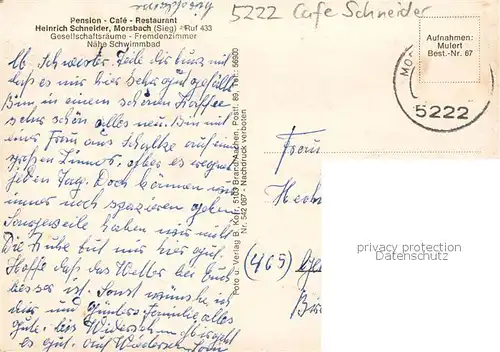 5222 Cafe Schneider
Pension - Café - Restaurant
Heinrich Schneider, Morsbach (Sieg) Ruf 433
Gesellschaftsräume - Fremdenzimmer
Nähe Schwimmbad
Aufnahmen:
Mulert
Best.-Nr. 67
5222
Lb. Schwester. Teile dir kurz mit
daß es mir hier sehr gut gefällt
Bin in einem schönen Kaffee
sehr schön alles neu. Bin mit
einer Frau aus Schalke auf einem
großen Zimmer, aber es regnet
jeden Tag. Doch können wir
immer noch spazieren gehen
Langeweile haben wir nicht
Die Ruhe tut mir hier gut.
Hoffe daß das Wetter bei Euch
besser ist. Sonst wünsche ich
dir und Günters Familie alles
gute. bis Wiedersehn
es gut. auf Wiedersehn
Foto u. Verlag B. Kohr, 5103 Brand/Aachen, Postf. 89, Tel. 56800
Nr. 542 067 - Nachdruck verboten
Frau
(465)
privacy protection
Datenschutz